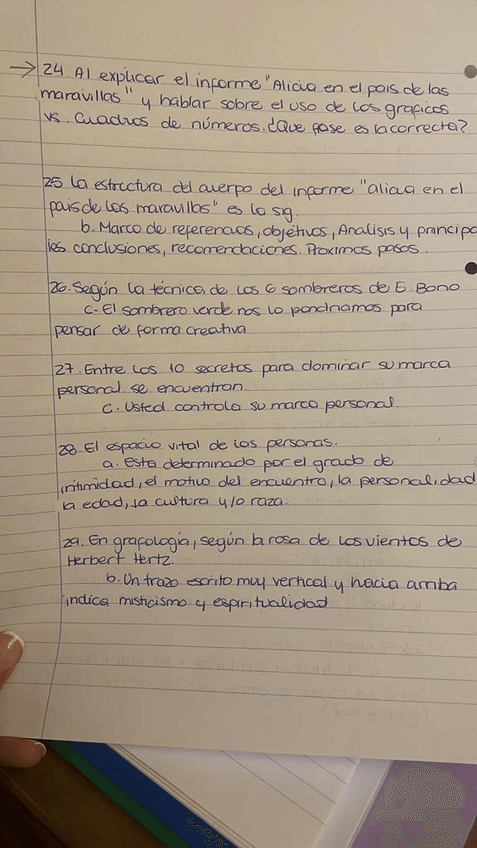 → 24 Al explicar el informe "Alicia en el pais de las
maravillas" y hablar sobre el uso de los graficos
vs. cuadros de números. ¿Que frase es la correcta?
25 La estructura del cuerpo del informe "alicia en el
pais de las maravillas" es la sig.
b. Marco de referencias, objetivos, Analisis y principa
les conclusiones, recomendaciones. Proximos pasos.
26. Según la técnica de los 6 sombreros de E. Bono
c. El sombrero verde nos lo pondriamos para
pensar de forma creativa
27. Entre los 10 secretos para dominar su marca
personal se encuentran.
c. Usted controla su marca personal.
28. El espacio vital de las personas.
a. Esta determinado por el grado de
intimidad, el motivo del encuentro, la personalidad
la edad, la cultura y/o raza.
29. En grafología, según la rosa de los vientos de
Herbert Hertz.
b. Un trazo escrito muy vertical y hacia arriba
indica misticismo y espiritualidad